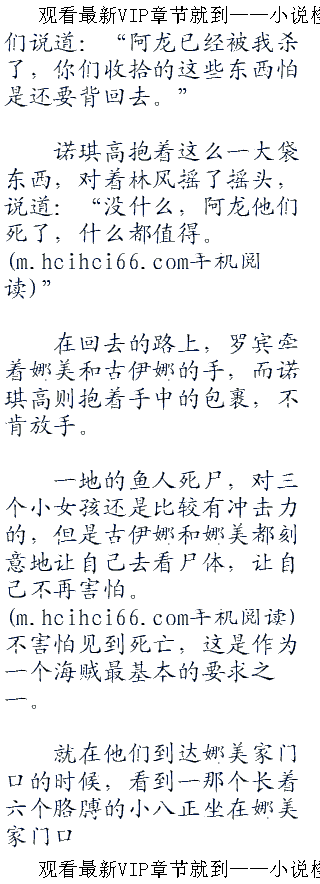 观看最新VIP章节就到——小说检
们说道：“阿龙已经被我杀
了，你们收拾的这些东西怕
是还要背回去。”
诺琪高抱着这么一大袋
东西，对着林风摇了摇头，
说道：“没什么，阿龙他们
死了，什么都值得。
(m.hcihci66.com手机阅
读)”
在回去的路上，罗宾牵
着娜美和古伊娜的手，而诺
琪高则抱着手中的包裹，不
肯放手。
一地的鱼人死尸，对三
个小女孩还是比较有冲击力
的，但是古伊娜和娜美都刻
意地让自己去看尸体，让自
己不再害怕。
(m.hcihci66.com手机阅读)
不害怕见到死亡，这是作为
一个海贼最基本的要求之
一。
就在他们到达娜美家门
口的时候，看到一那个长着
六个胳膊的小八正坐在娜美
家门口
观看最新VIP章节就到——小说检